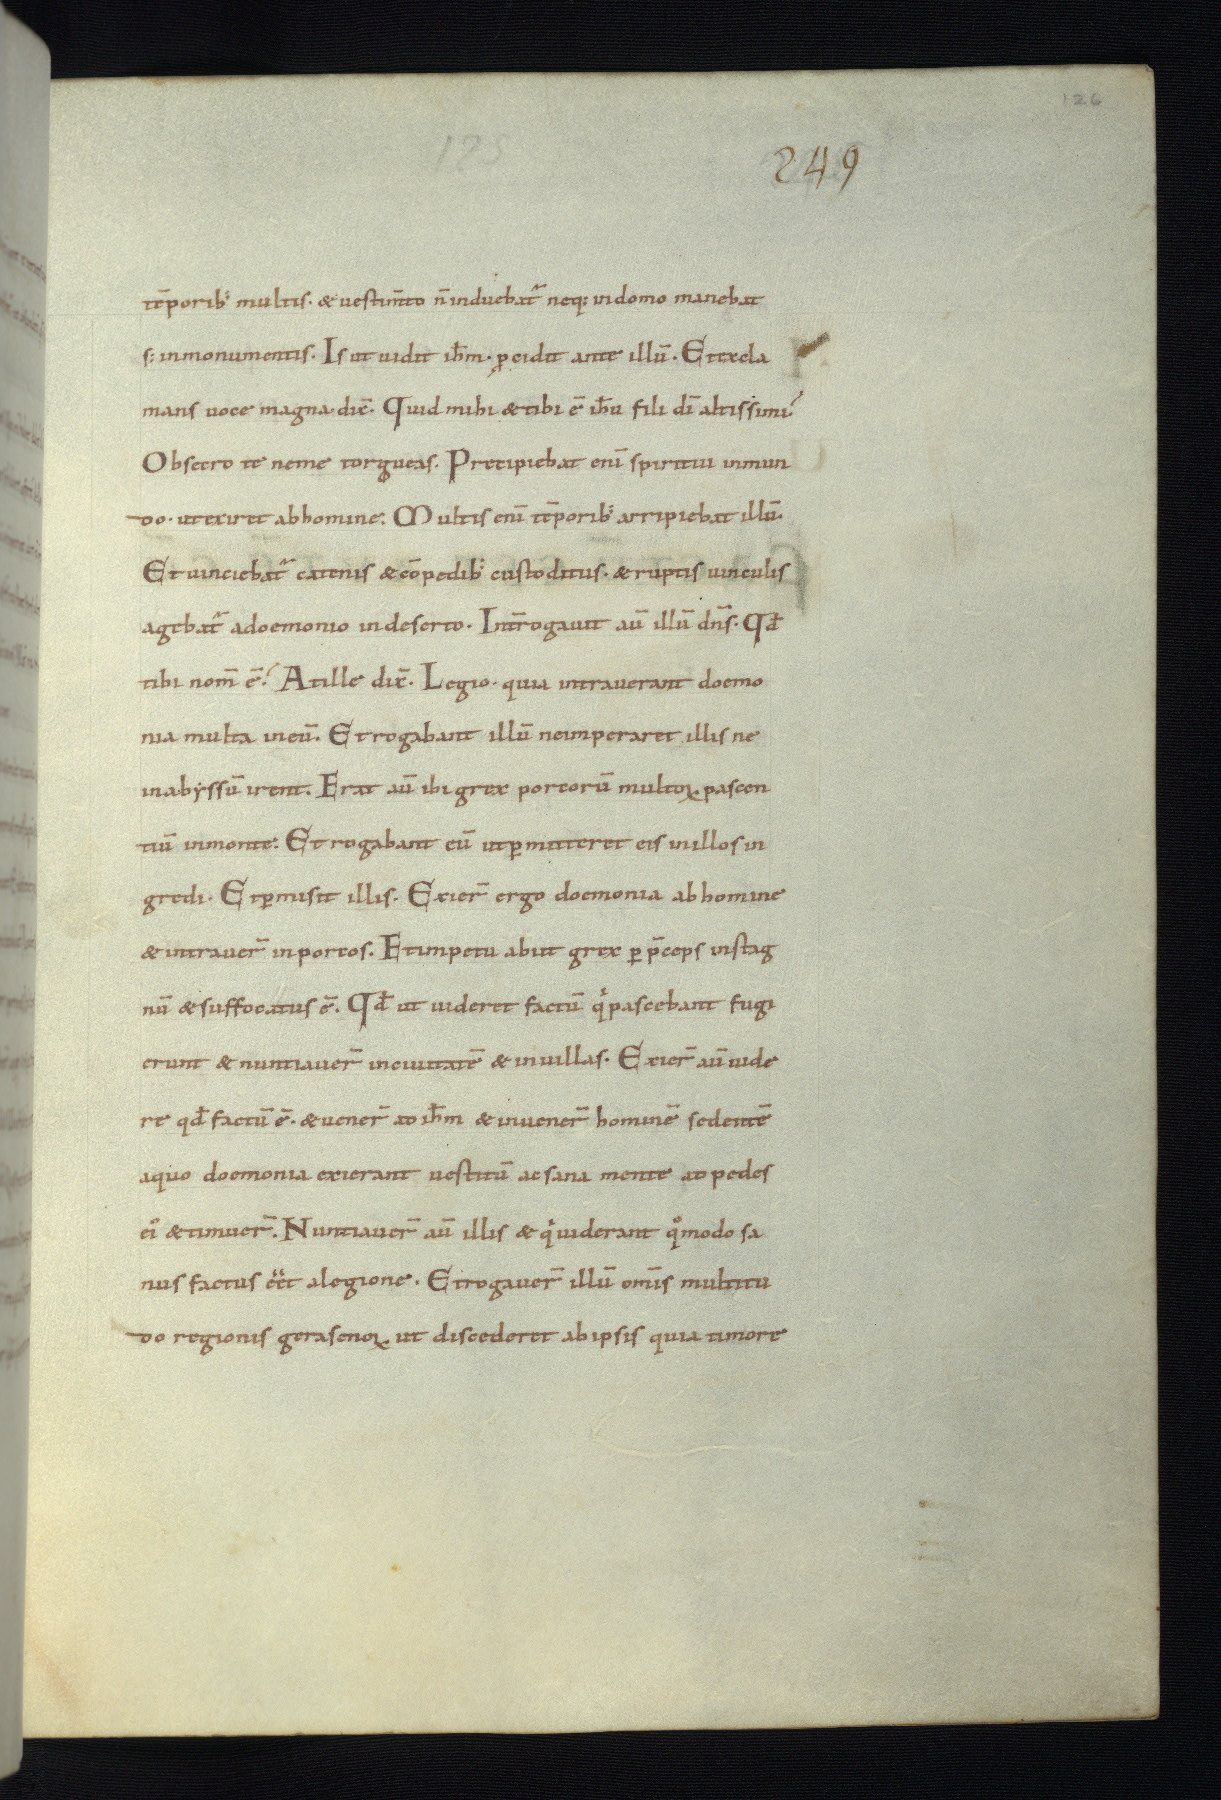 126
125
249
tēporib; multis. & uestim̄to n̄ induebat̄ neq; in domo manebat
s; in monumentis. Is ut uidit ih̄m. ꝓcidit ante illū. Et excla
mans uoce magna dix̄. Quid mihi & tibi ē ih̄u fili dī altissimi?
Obsecro te ne me torqueas. Precipiebat enī spiritui inmun
do. ut exiret ab homine. Multis enī tēporib; arripiebat illū.
Et uinciebat̄ catenis & cōpedib; custoditus. & ruptis uinculis
agebat̄ a doemonio in deserto. Int̄rogauit aū illū dn̄s. Qd̄
tibi nom̄ ē? At ille dix̄. Legio. quia intrauerant doemo
nia multa in eū. Et rogabant illū ne imperaret illis ne
in abẏssū irent. Erat aū ibi grex porcorū multoꝝ pascen
tiū in monte. Et rogabant eū ut ꝑmitteret eis in illos in
gredi. Et ꝑmisit illis. Exier̄ ergo doemonia ab homine
& intrauer̄ in porcos. Et impetu abiit grex ꝑ p̄ceps in stag
nū & suffocatus ē. Qd̄ ut uideret factū qͥ pascebant fugi
erunt & nuntiauer̄ in ciuitatē & in uillas. Exier̄ aū uide
re qd̄ factū ē. & uener̄ ad ih̄m & inuener̄ hominē sedentē
a quo doemonia exierant uestitū ac sana mente ad pedes
ei᾿ & timuer̄. Nuntiauer̄ aū illis & qͥ uiderant qͦmodo sa
nus factus ēet a legione. Et rogauer̄ illū om̄is multitu
do regionis gerasenoꝝ ut discederet ab ipsis quia timore